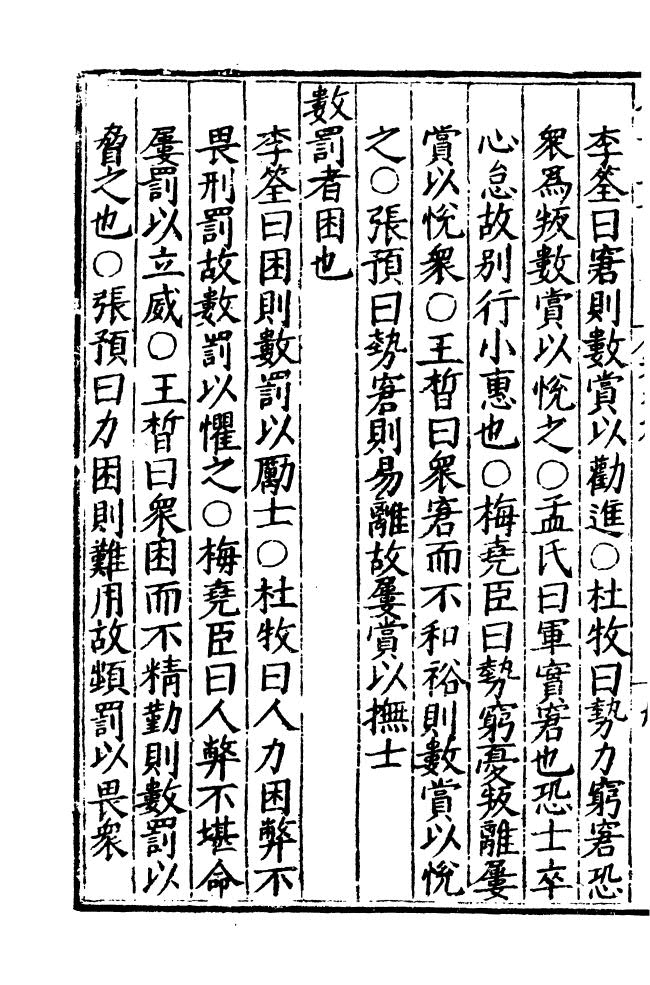 李筌曰窘則數賞以勸進○杜牧曰勢力窮窘恐
衆爲叛數賞以悅之○孟氏曰軍實窘也恐士卒
心怠故別行小惠也○梅堯臣曰勢窮憂叛離屢
賞以悅衆○王晳曰衆窘而不和裕則數賞以悅
之○張預曰勢窘則易離故屢賞以撫士
數罰者困也
李筌曰困則數罰以勵士○杜牧曰人力困弊不
畏刑罰故數罰以懼之○梅堯臣曰人弊不堪命
屢罰以立威○王晳曰衆困而不精勤則數罰以
脅之也○張預曰力困則難用故頻罰以畏衆